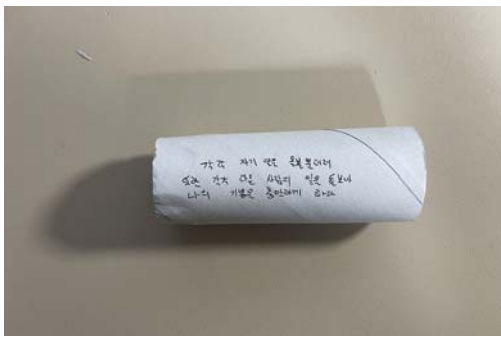 각각 자기 일을 돌볼뿐더러
또한 각각 다른 사람의 일을 돌보아
나의 기쁨을 충만하게 하라